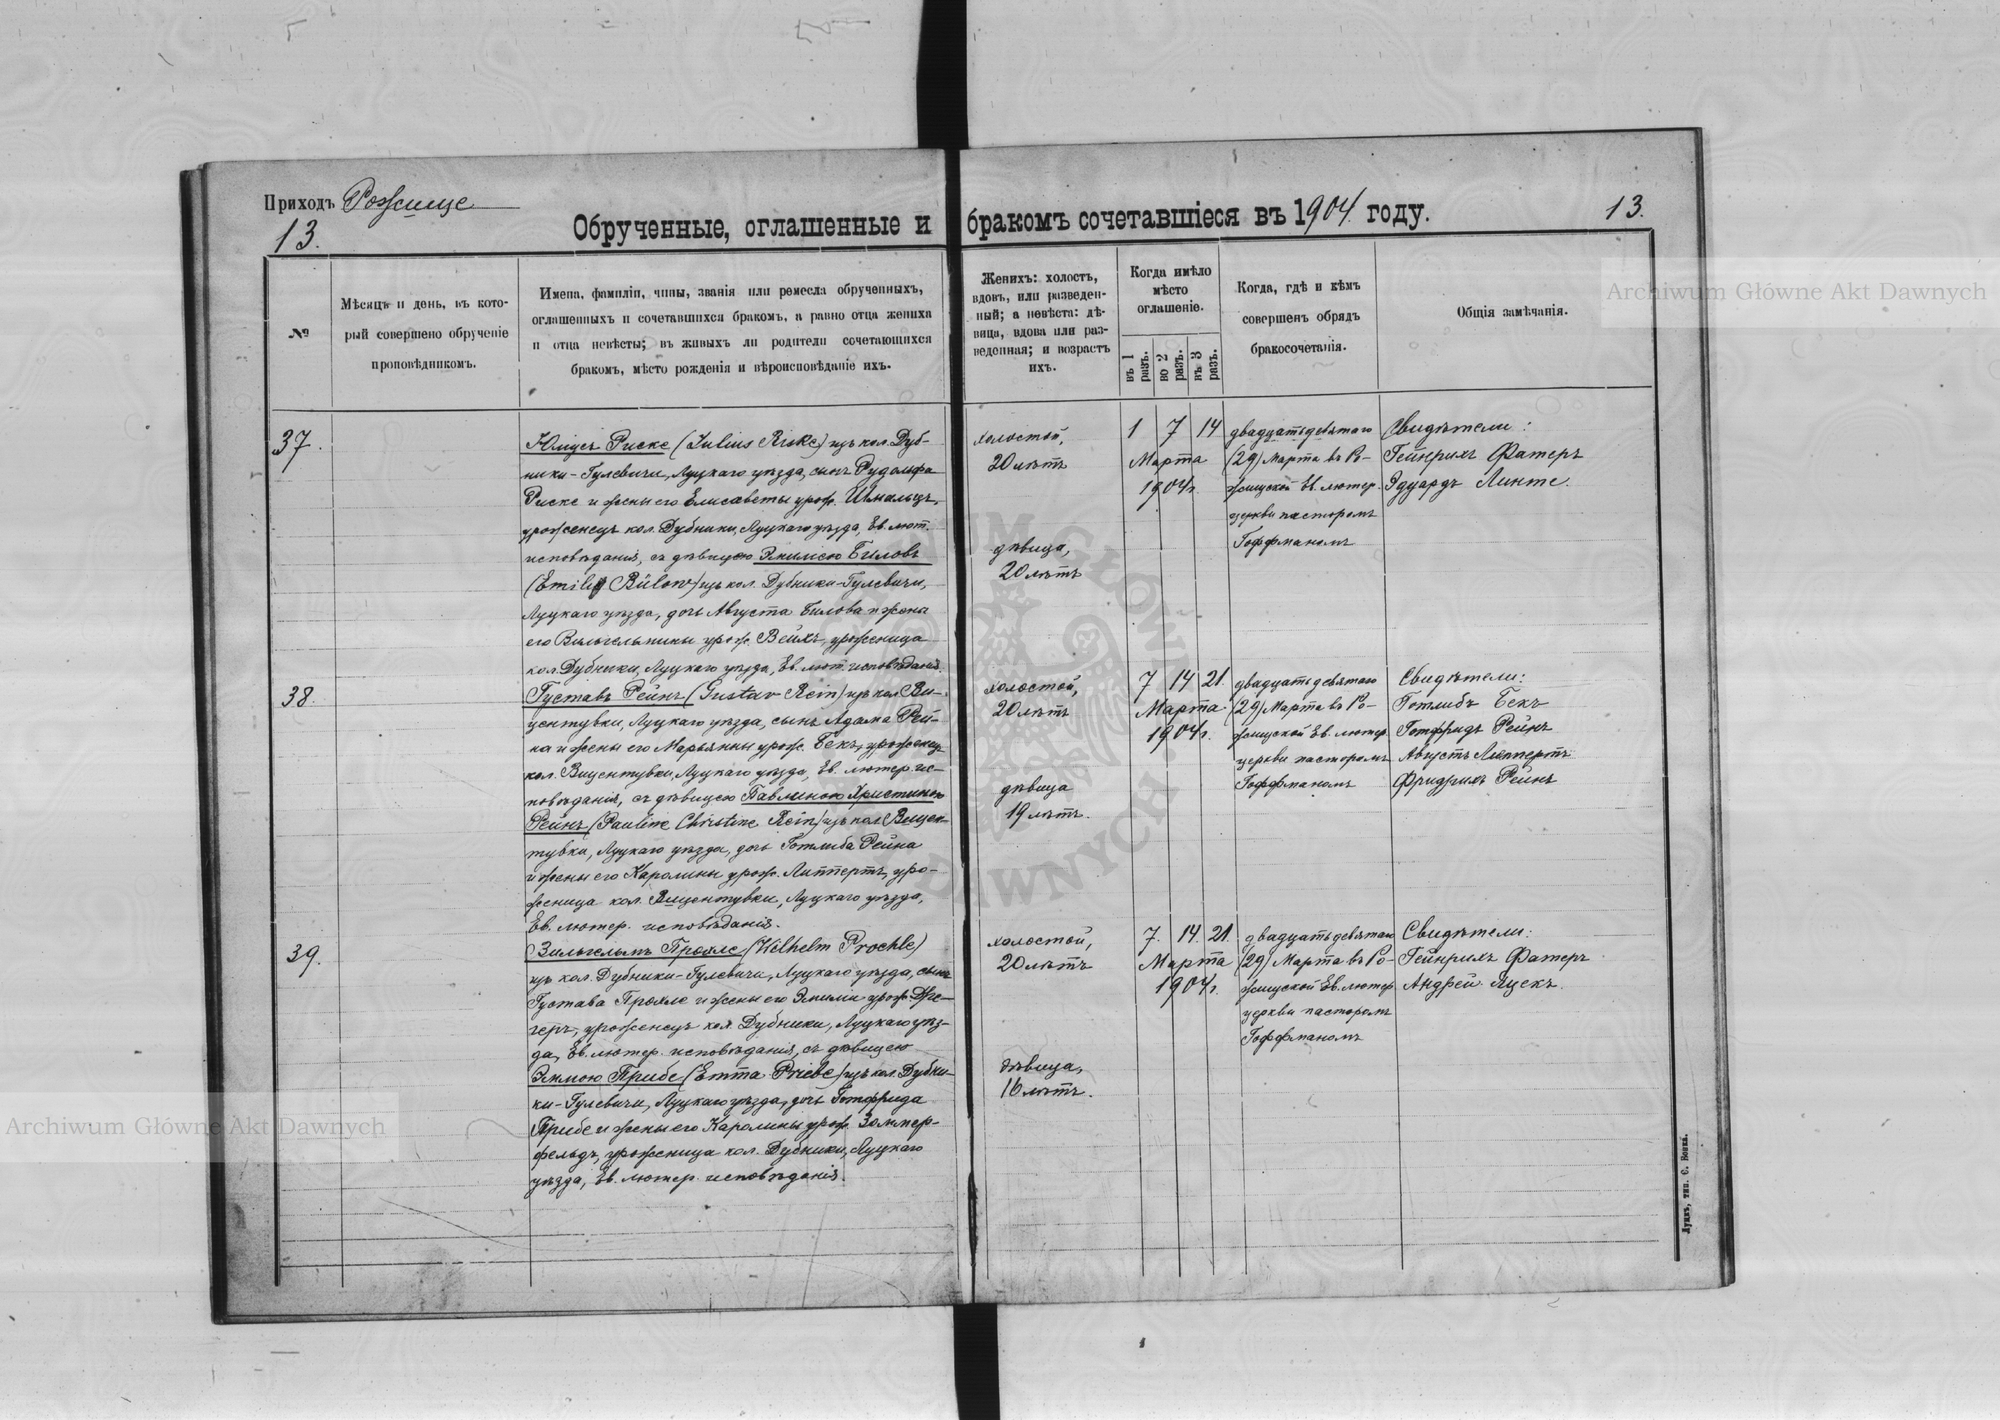 Приходъ Рожище
13.
Обрученные, оглашенные и бракомъ сочетавшіеся въ 1904 году.
13.
№
Мѣсяцъ и день, въ кото-
рый совершено обрученіе
проповѣдникомъ.
Имена, фамиліи, чины, званія или ремесла обрученныхъ,
оглашенныхъ и сочетавшихся бракомъ, а равно отца жениха
и отца невѣсты; въ живыхъ ли родители сочетающихся
бракомъ, мѣсто рожденія и вѣроисповѣданіе ихъ.
Женихъ: холостъ,
вдовъ, или разведен-
ный; а невѣста: дѣ-
вица, вдова или раз-
веденная; и возрастъ
ихъ.
Когда имѣло
мѣсто
оглашеніе.
въ 1
разъ.
во 2
разъ.
въ 3
разъ.
Когда, гдѣ и кѣмъ
совершенъ обрядъ
бракосочетанія.
Общія замѣчанія.
37.
Юлiусъ Риске (Julius Riske) изъ кол. Дуб-
ники-Гулевичи, Луцкаго уѣзда, сынъ Рудольфа
Риске и жены его Елисаветы урож. Шмальцъ,
уроженецъ кол. Дубники, Луцкаго уѣзда, Ев. лют.
исповѣданія, съ дѣвицею Эмилiею Биловъ
(Emilie Bülow) изъ кол. Дубники-Гулевичи,
Луцкаго уѣзда, дочь Августа Билова и жены
его Вильгельмины урож. Вейхъ, уроженица
кол. Дубники, Луцкаго уѣзда, Ев. лют. исповѣданія.
холостой,
20 лѣтъ
дѣвица,
20 лѣтъ
1 7 14
Марта
1904 г.
двадцать девятаго
(29) Марта въ Ро-
жищской Ев. лютер.
церкви пасторомъ
Гоффманомъ
Свидѣтели:
Гейнрихъ Фатеръ
Эдуардъ Линке.
38.
Густавъ Рейнъ (Gustav Rein) изъ кол. Ви-
центувки, Луцкаго уѣзда, сынъ Адама Рей-
на и жены его Марьянны урож. Бекъ, уроженецъ
кол. Вицентувки, Луцкаго уѣзда, Ев. лютер. ис-
повѣданія, съ дѣвицею Павлиною Христиною
Рейнъ (Pauline Christine Rein) изъ кол. Вицен-
тувки, Луцкаго уѣзда, дочь Готлиба Рейна
и жены его Каролины урож. Липпертъ, уро-
женица кол. Вицентувки, Луцкаго уѣзда,
Ев. лютер. исповѣданія.
холостой,
20 лѣтъ
дѣвица
19 лѣтъ.
7 14 21.
Марта
1904 г.
двадцать девятаго
(29) Марта въ Ро-
жищской Ев. лютер.
церкви пасторомъ
Гоффманомъ
Свидѣтели:
Готлибъ Бекъ
Готфридъ Рейнъ
Августъ Липпертъ
Фридрихъ Рейнъ
39.
Вильгельмъ Прохле (Wilhelm Prochle)
изъ кол. Дубники-Гулевичи, Луцкаго уѣзда, сынъ
Густава Прохле и жены его Эмилiи урож.
уроженецъ кол. Дубники, Луцкаго уѣз-
да, Ев. лютер. исповѣданія, съ дѣвицею
Эммою Прибе (Emma Priebe) изъ кол. Дубни-
ки-Гулевичи, Луцкаго уѣзда, дочь Готфрида
Прибе и жены его Каролины урож. Зоммер-
фельдъ, уроженица кол. Дубники, Луцкаго
уѣзда, Ев. лютер. исповѣданія.
холостой,
20 лѣтъ
дѣвица,
16 лѣтъ.
7. 14. 21.
Марта
1904 г.
двадцать девятаго
(29) Марта въ Ро-
жищской Ев. лютер.
церкви пасторомъ
Гоффманомъ
Свидѣтели:
Гейнрихъ Фатеръ
Андрей Яцекъ.
Луцкъ, тип. С. Бонка.
Archiwum Główne Akt Dawnych
Archiwum Główne Akt Dawnych